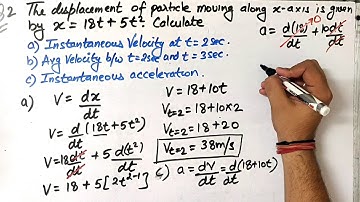 2 The displacement of particle moving along x-axis is given
by x = 18t + 5t². Calculate
a) Instantaneous Velocity at t = 2sec.
b) Avg Velocity b/w t=2sec and t = 3sec.
c) Instantaneous acceleration.
a = d(18)/dt → 0 + 10 dt/dt
a) V = dx/dt
V = d/dt (18t + 5t²)
V = 18 dt/dt + 5 d(t²)/dt
V = 18 + 5[2t²⁻¹]
V = 18 + 10t
Vt=2 = 18 + 10×2
Vt=2 = 18 + 20
Vt=2 = 38m/s
c) a = dV/dt = d/dt (18+10t)